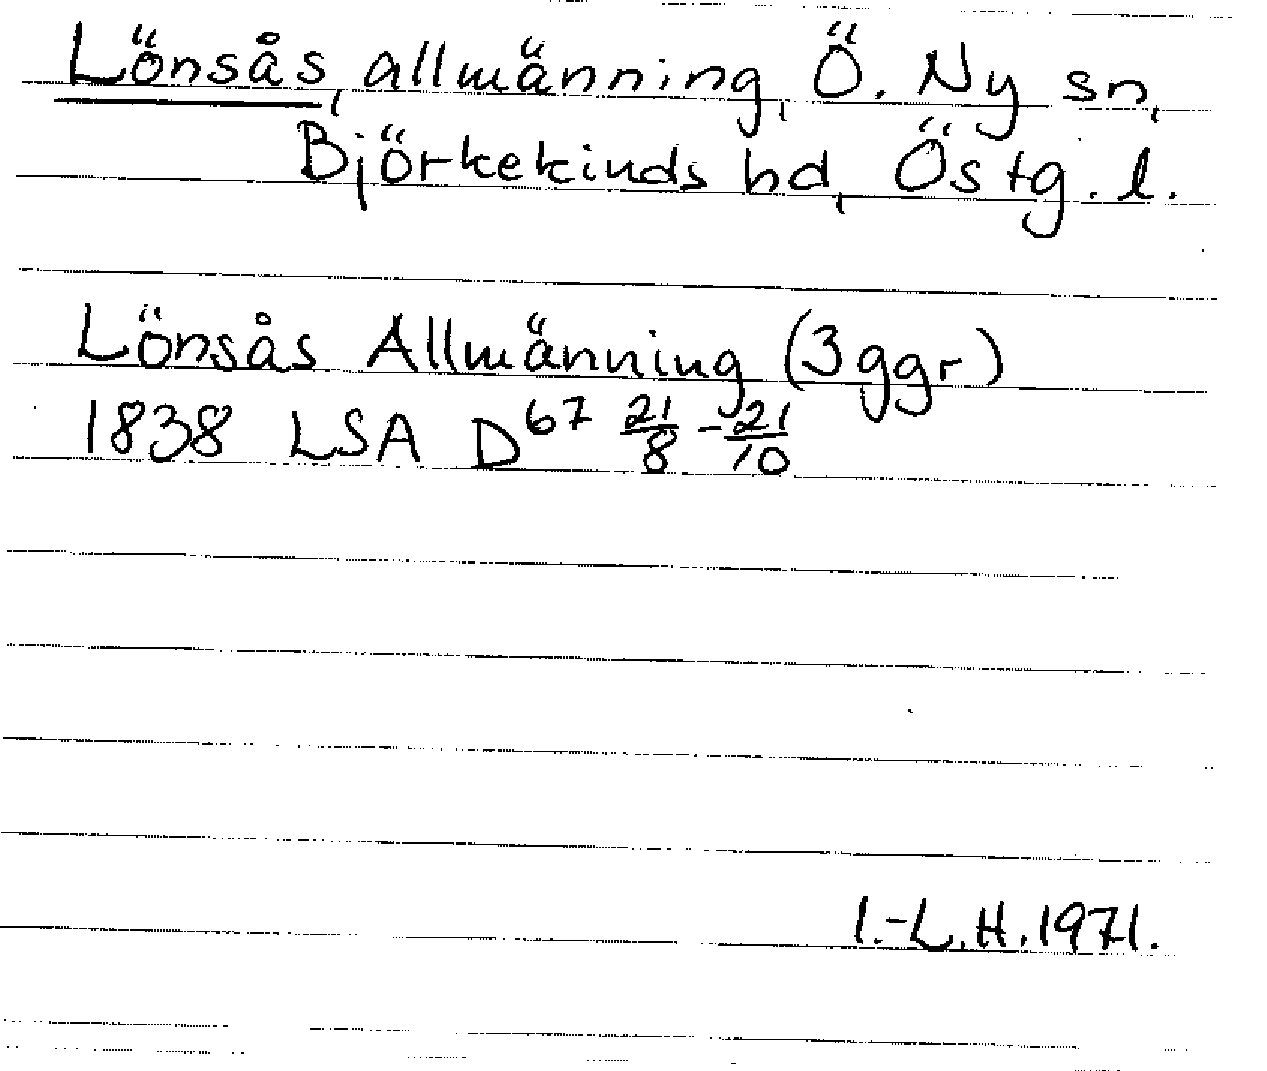 Lönsås, allmänning, Ö. Ny sn,
Björkekinds hd, Östg. l.
Lönsås Allmänning (3 ggr)
1838 LSA D67 21/8 - 21/10
I.-L.H. 1971.